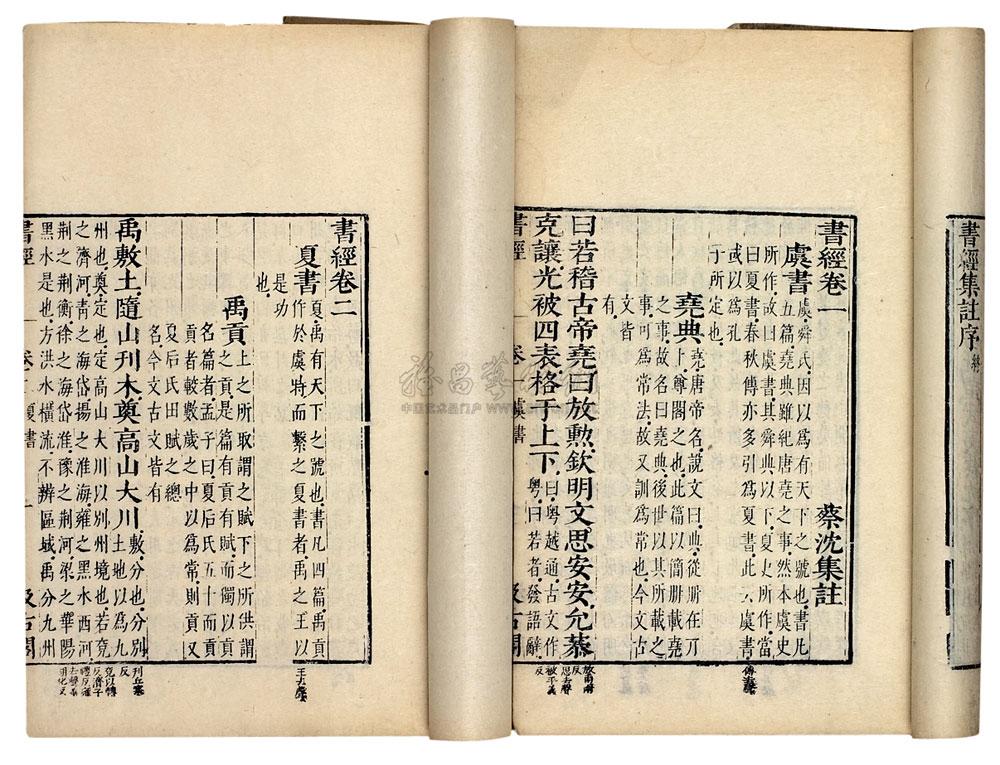 書經集註序 終
書經卷一 蔡沈集註
虞書 虞舜氏因以爲有天下之號也書凡
五篇堯典雖紀唐堯之事然本虞史
所作故曰虞書其舜典以下夏史所作當
曰夏書春秋傳亦多引爲夏書此云虞書
或以爲孔
子所定也
堯典 堯唐帝名說文曰典從冊在丌
上尊閣之也此篇以簡册載堯
之事故名曰堯典後世以其所載之
事可爲常法故又訓爲常也今文古
文皆
有
曰若稽古帝堯曰放勳欽明文思安安允恭
克讓光被四表格于上下 曰粵越通古文作
粵曰若者發語辭
書經 卷一 虞書 一 汲古閣
傳去聲
思去聲
書經卷二
夏書 夏禹有天下之號也書凡四篇禹貢
作於虞時而繫之夏書者禹之王以
是功
也
禹貢 上之所取謂之賦下之所供謂
之貢是篇有貢有賦而獨以貢
名篇者孟子曰夏后氏五十而貢
貢者較數歲之中以爲常則貢又
夏后氏田賦之總
名今文古文皆有
禹敷土隨山刊木奠高山大川 敷分也分別
土地以爲九
州也奠定也定高山大川以別州境也若兗
之濟河青之海岱揚之淮海雍之黑水西河
荊之荊衡徐之海岱淮豫之荊河梁之華陽
黑水是也方洪水橫流不辨區域禹分九州
書經 卷二 夏書 一 汲古閣
王去聲
中国艺术品门户